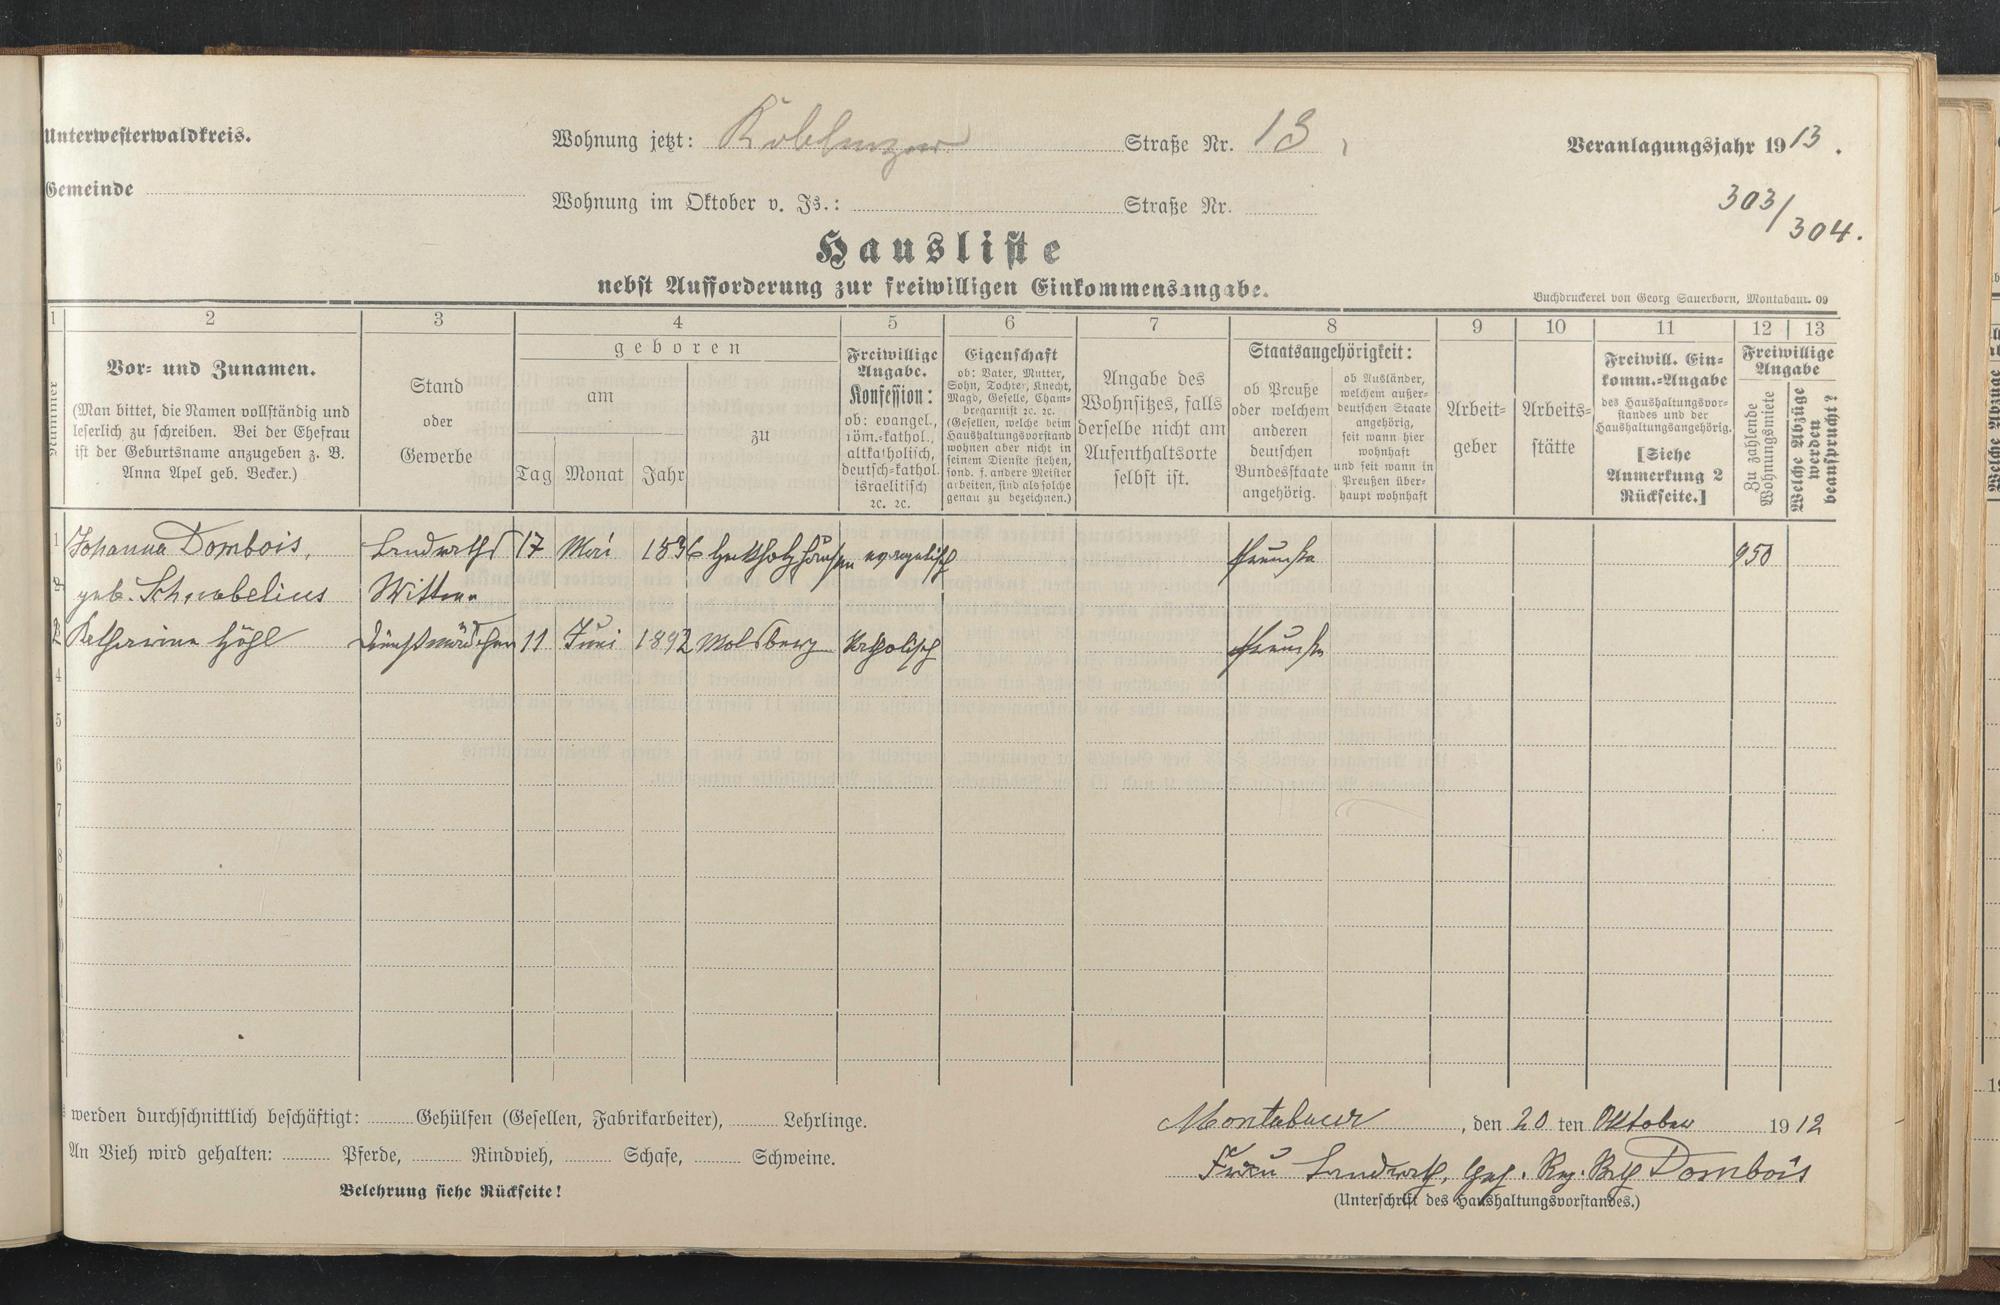 Unterwesterwaldkreis.
Wohnung jetzt: Koblenzer Straße Nr. 13
Veranlagungsjahr 1913.
Gemeinde
Wohnung im Oktober v. Js.: Straße Nr.
303/304.
Hausliste
nebst Aufforderung zur freiwilligen Einkommensangabe.
Buchdruckerei von Georg Sauerborn, Montabaur. 09
1 2 3 4 5 6 7 8 9 10 11 12 13
Nummer
Vor- und Zunamen.
(Man bittet, die Namen vollständig und
leserlich zu schreiben. Bei der Ehefrau
ist der Geburtsname anzugeben z. B.
Anna Apel geb. Becker.)
Stand
oder
Gewerbe
geboren
am
Tag Monat Jahr
zu
Freiwillige
Angabe.
Konfession:
ob: evangel.,
röm.-kathol.,
altkatholisch,
deutsch-kathol.
israelitisch
ꝛc. ꝛc.
Eigenschaft
ob: Vater, Mutter,
Sohn, Tochter, Knecht,
Magd, Geselle, Cham-
bregarnist ꝛc. ꝛc.
(Gesellen, welche beim
Haushaltungsvorstand
wohnen aber nicht in
seinem Dienste stehen,
sond. f. andere Meister
arbeiten, sind als solche
genau zu bezeichnen.)
Angabe des
Wohnsitzes, falls
derselbe nicht am
Aufenthaltsorte
selbst ist.
Staatsangehörigkeit:
ob Preuße
oder welchem
anderen
deutschen
Bundesstaate
angehörig.
ob Ausländer,
welchem außer-
deutschen Staate
angehörig,
seit wann hier
wohnhaft
und seit wann in
Preußen über-
haupt wohnhaft
Arbeit-
geber
Arbeits-
stätte
Freiwill. Ein-
komm.-Angabe
des Haushaltungsvor-
standes und der
Haushaltungsangehörig.
[Siehe
Anmerkung 2
Rückseite.]
Freiwillige
Angabe
Zu zahlende
Wohnungsmiete
Welche Abzüge
werden
beansprucht?
1 Johanna Dombois, Landraths 17 Mai 1836 evangelisch Preußen 950
geb. Schnabelius Wittwe
2 Katharina Högl Dienstmädchen 11 Juni 1892 Molsberg katholisch Preußen
4
5
6
7
8
9
werden durchschnittlich beschäftigt: Gehülfen (Gesellen, Fabrikarbeiter), Lehrlinge.
An Vieh wird gehalten: Pferde, Rindvieh, Schafe, Schweine.
Belehrung siehe Rückseite!
Montabaur, den 20 ten Oktober 1912
Frau Landrath, Geh. Reg. Rath Dombois
(Unterschrift des Haushaltungsvorstandes.)